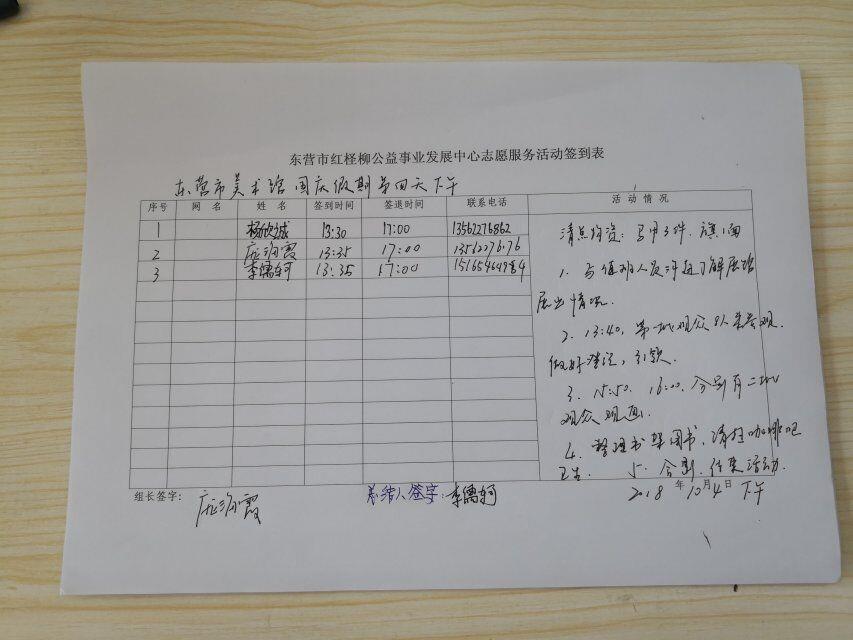 东营市红柽柳公益事业发展中心志愿服务活动签到表
东营市美术馆国庆假期第四天下午
序号 网名 姓名 签到时间 签退时间 联系电话 活动情况
1 杨欣诚 13:30 17:00 13562276862
2 13:35 17:00 1356227676
3 李儒轲 13:35 17:00
清点物资:马甲3件,旗1面
1、与值班人员沟通了解展馆
展出情况.
2、13:40,第一批观众8人来参观.
做好登记,引领.
3、15:50、16:00、分别有二批
观众观画.
4、整理书架图书,清扫咖啡吧
卫生. 5、合影,结束活动.
2018年10月4日下午
组长签字:
总结人签字:李儒轲